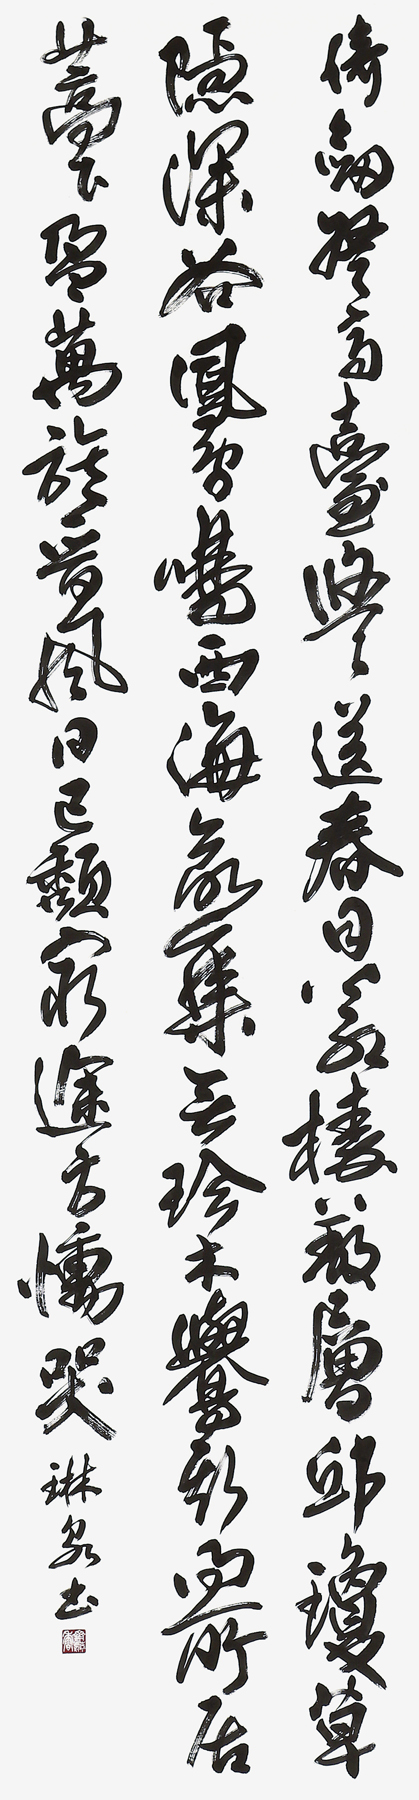 倚劍登高臺悠々送春目蒼榛蔽層邱瓊草
隱深谷鳳鳥鳴西海欲集無珍木鸒斯得所居
蒿下盈萬族晉風日已頹窮途方慟哭 琳泉書